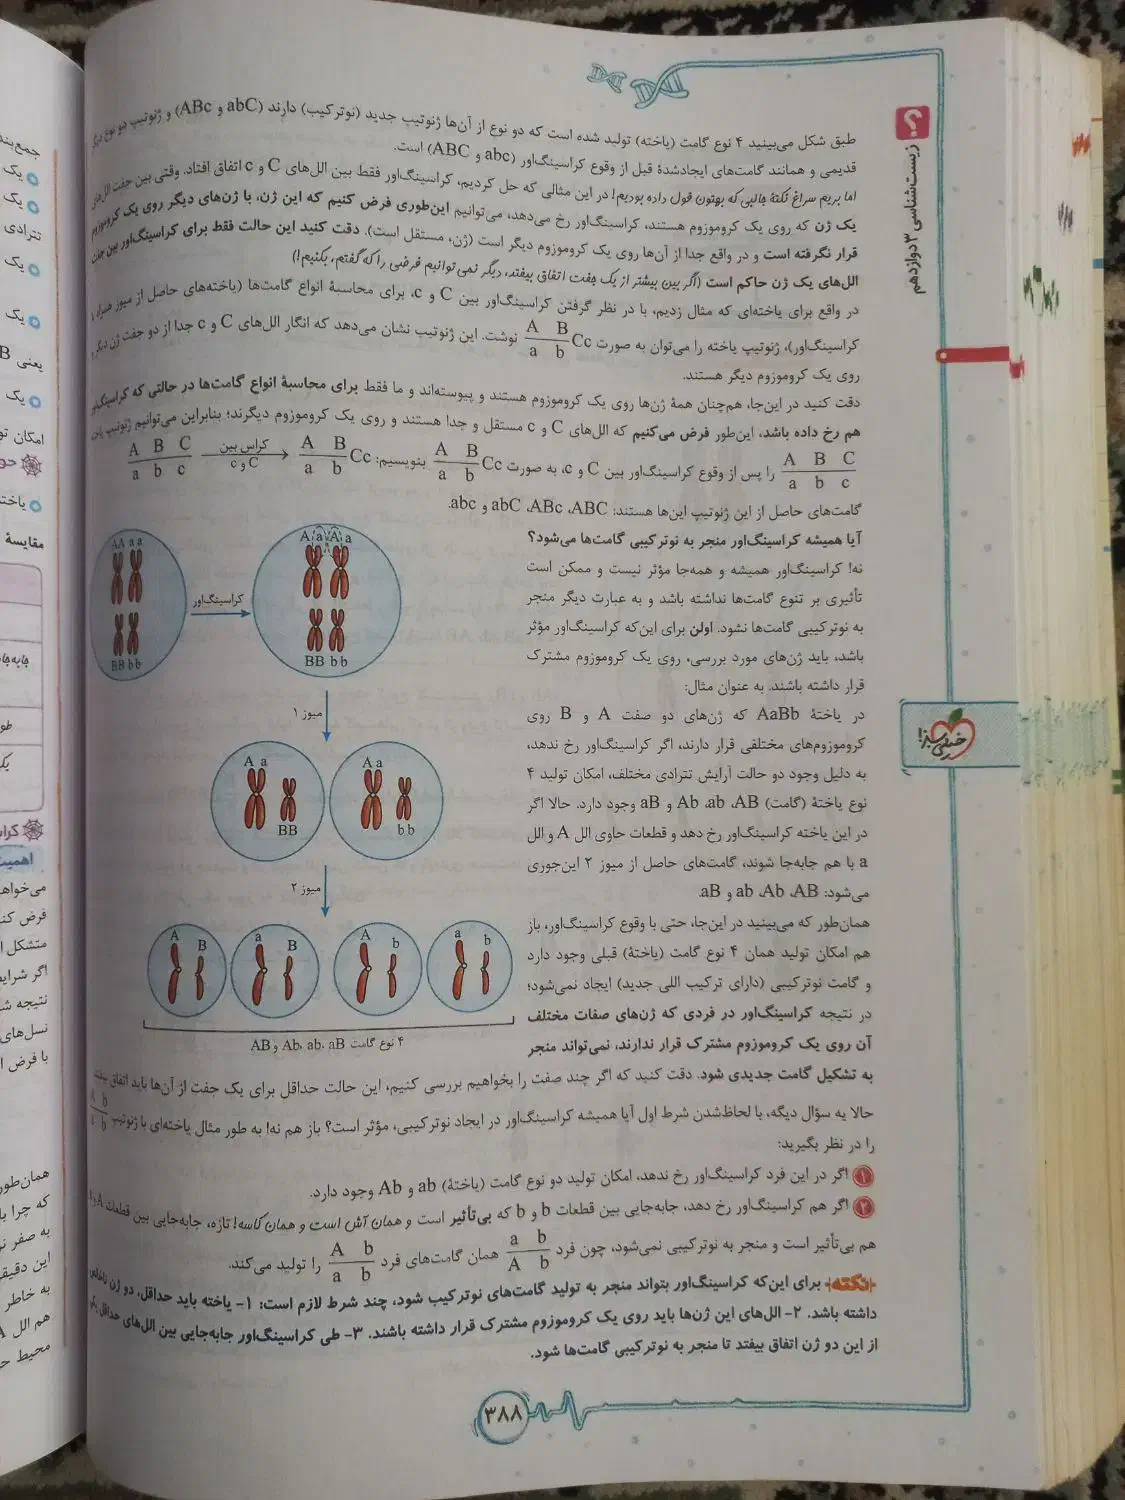 زیست‌شناسی ۳ دوازدهم
طبق شکل می‌بینید ۴ نوع گامت (یاخته) تولید شده است که دو نوع از آن‌ها ژنوتیپ جدید (نوترکیب) دارند (abC و ABc) و ژنوتیپ دو نوع دیگر
قدیمی و همانند گامت‌های ایجادشدهٔ قبل از وقوع کراسینگ‌اور (abc و ABC) است.
اما بریم سراغ نکتهٔ جالبی که بهتون قول داده بودیم! در این مثالی که حل کردیم، کراسینگ‌اور فقط بین الل‌های C و c اتفاق افتاد. وقتی بین جفت الل‌های
یک ژن که روی یک کروموزوم هستند، کراسینگ‌اور رخ می‌دهد، می‌توانیم این‌طوری فرض کنیم که این ژن، با ژن‌های دیگر روی یک کروموزوم
قرار نگرفته است و در واقع جدا از آن‌ها روی یک کروموزوم دیگر است (ژن، مستقل است). دقت کنید این حالت فقط برای کراسینگ‌اور بین جفت
الل‌های یک ژن حاکم است (اگر بین بیشتر از یک جفت اتفاق بیفتد، دیگر نمی‌توانیم فرضی را که گفتم، بکنیم!)
در واقع برای یاخته‌ای که مثال زدیم، با در نظر گرفتن کراسینگ‌اور بین C و c، برای محاسبهٔ انواع گامت‌ها (یاخته‌های حاصل از میوز همراه با
کراسینگ‌اور)، ژنوتیپ یاخته را می‌توان به صورت A B / a b Cc نوشت. این ژنوتیپ نشان می‌دهد که انگار الل‌های C و c جدا از دو جفت ژن دیگر و
روی یک کروموزوم دیگر هستند.
دقت کنید در این‌جا، هم‌چنان همهٔ ژن‌ها روی یک کروموزوم هستند و پیوسته‌اند و ما فقط برای محاسبهٔ انواع گامت‌ها در حالتی که کراسینگ‌اور
هم رخ داده باشد، این‌طور فرض می‌کنیم که الل‌های C و c مستقل و جدا هستند و روی یک کروموزوم دیگرند؛ بنابراین می‌توانیم ژنوتیپ
A B C / a b c را پس از وقوع کراسینگ‌اور بین C و c، به صورت A B / a b Cc بنویسیم: A B C / a b c کراس بین C و c → A B / a b Cc
گامت‌های حاصل از این ژنوتیپ این‌ها هستند: ABC، ABc، abC و abc.
آیا همیشه کراسینگ‌اور منجر به نوترکیبی گامت‌ها می‌شود؟
نه! کراسینگ‌اور همیشه و همه‌جا مؤثر نیست و ممکن است
تأثیری بر تنوع گامت‌ها نداشته باشد و به عبارت دیگر منجر
به نوترکیبی گامت‌ها نشود. اولن برای این‌که کراسینگ‌اور مؤثر
باشد، باید ژن‌های مورد بررسی، روی یک کروموزوم مشترک
قرار داشته باشند. به عنوان مثال:
در یاختهٔ AaBb که ژن‌های دو صفت A و B روی
کروموزوم‌های مختلفی قرار دارند، اگر کراسینگ‌اور رخ ندهد،
به دلیل وجود دو حالت آرایش تترادی مختلف، امکان تولید ۴
نوع یاختهٔ (گامت) AB، ab، Ab و aB وجود دارد. حالا اگر
در این یاخته کراسینگ‌اور رخ دهد و قطعات حاوی الل A و الل
a با هم جابه‌جا شوند، گامت‌های حاصل از میوز ۲ این‌جوری
می‌شود: AB، Ab، ab و aB.
همان‌طور که می‌بینید در این‌جا، حتی با وقوع کراسینگ‌اور، باز
هم امکان تولید همان ۴ نوع گامت (یاختهٔ) قبلی وجود دارد
و گامت نوترکیبی (دارای ترکیب اللی جدید) ایجاد نمی‌شود؛
در نتیجه کراسینگ‌اور در فردی که ژن‌های صفات مختلف
آن روی یک کروموزوم مشترک قرار ندارند، نمی‌تواند منجر
به تشکیل گامت جدیدی شود. دقت کنید که اگر چند صفت را بخواهیم بررسی کنیم، این حالت حداقل برای یک جفت از آن‌ها باید اتفاق بیفتد
AA aa
BB bb
کراسینگ‌اور
A a A a
BB bb
میوز ۱
A a
BB
A a
bb
میوز ۲
A B
a B
A b
a b
۴ نوع گامت Ab، ab، aB و AB
حالا یه سؤال دیگه، با لحاظ‌شدن شرط اول آیا همیشه کراسینگ‌اور در ایجاد نوترکیبی، مؤثر است؟ باز هم نه! به طور مثال یاخته‌ای با ژنوتیپ
را در نظر بگیرید:
۱ اگر در این فرد کراسینگ‌اور رخ ندهد، امکان تولید دو نوع گامت (یاختهٔ) ab و Ab وجود دارد.
۲ اگر هم کراسینگ‌اور رخ دهد، جابه‌جایی بین قطعات b و b که بی‌تأثیر است و همان آش است و همان کاسه! تازه، جابه‌جایی بین قطعات
هم بی‌تأثیر است و منجر به نوترکیبی نمی‌شود، چون فرد a b / A b همان گامت‌های فرد A b / a b را تولید می‌کند.
نکته برای این‌که کراسینگ‌اور بتواند منجر به تولید گامت‌های نوترکیب شود، چند شرط لازم است: ۱- یاخته باید حداقل، دو ژن ناخالص
داشته باشد. ۲- الل‌های این ژن‌ها باید روی یک کروموزوم مشترک قرار داشته باشند. ۳- طی کراسینگ‌اور جابه‌جایی بین الل‌های حداقل یکی
از این دو ژن اتفاق بیفتد تا منجر به نوترکیبی گامت‌ها شود.
خیلی سبز!
۳۸۸
جمع‌بند
یک
یک
تترادی
یک
یک
یعنی B
یک
امکان تو
یاخته
مقایسهٔ
جابه‌جا
اهمیت
می‌خواهـ
فرض کنـ
متشکل ا
اگر شرایط
نتیجه شـ
نسل‌های
با فرض ا
همان‌طور
که چرا با
به صفر نـ
این دقیقـ
به خاطر
هم الل A
محیط حـ